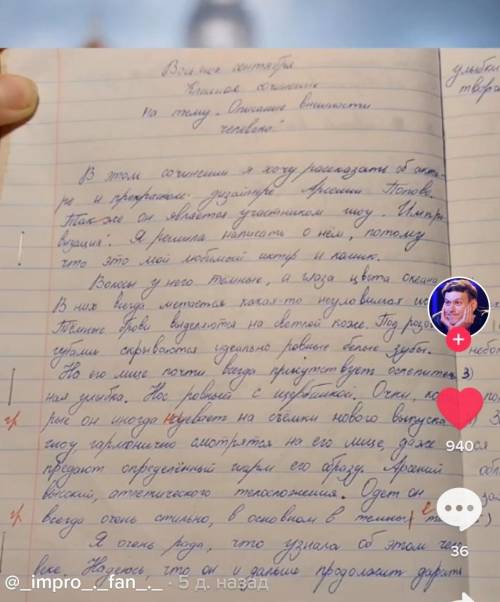 Восьмое сентября
Классное сочинение
На тему „Описание внешности
человека"
улыбки
В этом сочинении я хочу рассказать об актё-
ре и прекрасном дизайнере Арсении Попове.
Также он является участником шоу „Импро
визация". Я решила написать о нём, потому
что это мой любимый актёр и комик.
Волосы у него тёмные, а глаза цвета океана.
В них всегда мечется какая-то неуловимая
Тёмные брови выделяются на светлой коже. Под
губами скрываются идеально ровные белые зубы.
На его лице почти всегда присутствует ослепитель
3)
ная улыбка. Нос ровный с изюбинкой. Очки, ко
гр. рые он иногда надевает на съёмки нового выпуска
шоу гармонично смотрятся на его лице, даже
предают определённый шарм его образу. Арсений
высокий, атлетического телосложения. Одет он
гр. всегда очень стильно, в основном в темных
Я очень рада, что узнала об этом чело
веке. Надеюсь, что он и дальше продолжит дарить
940
36
@_impro_._fan_._ · 5 д. назад